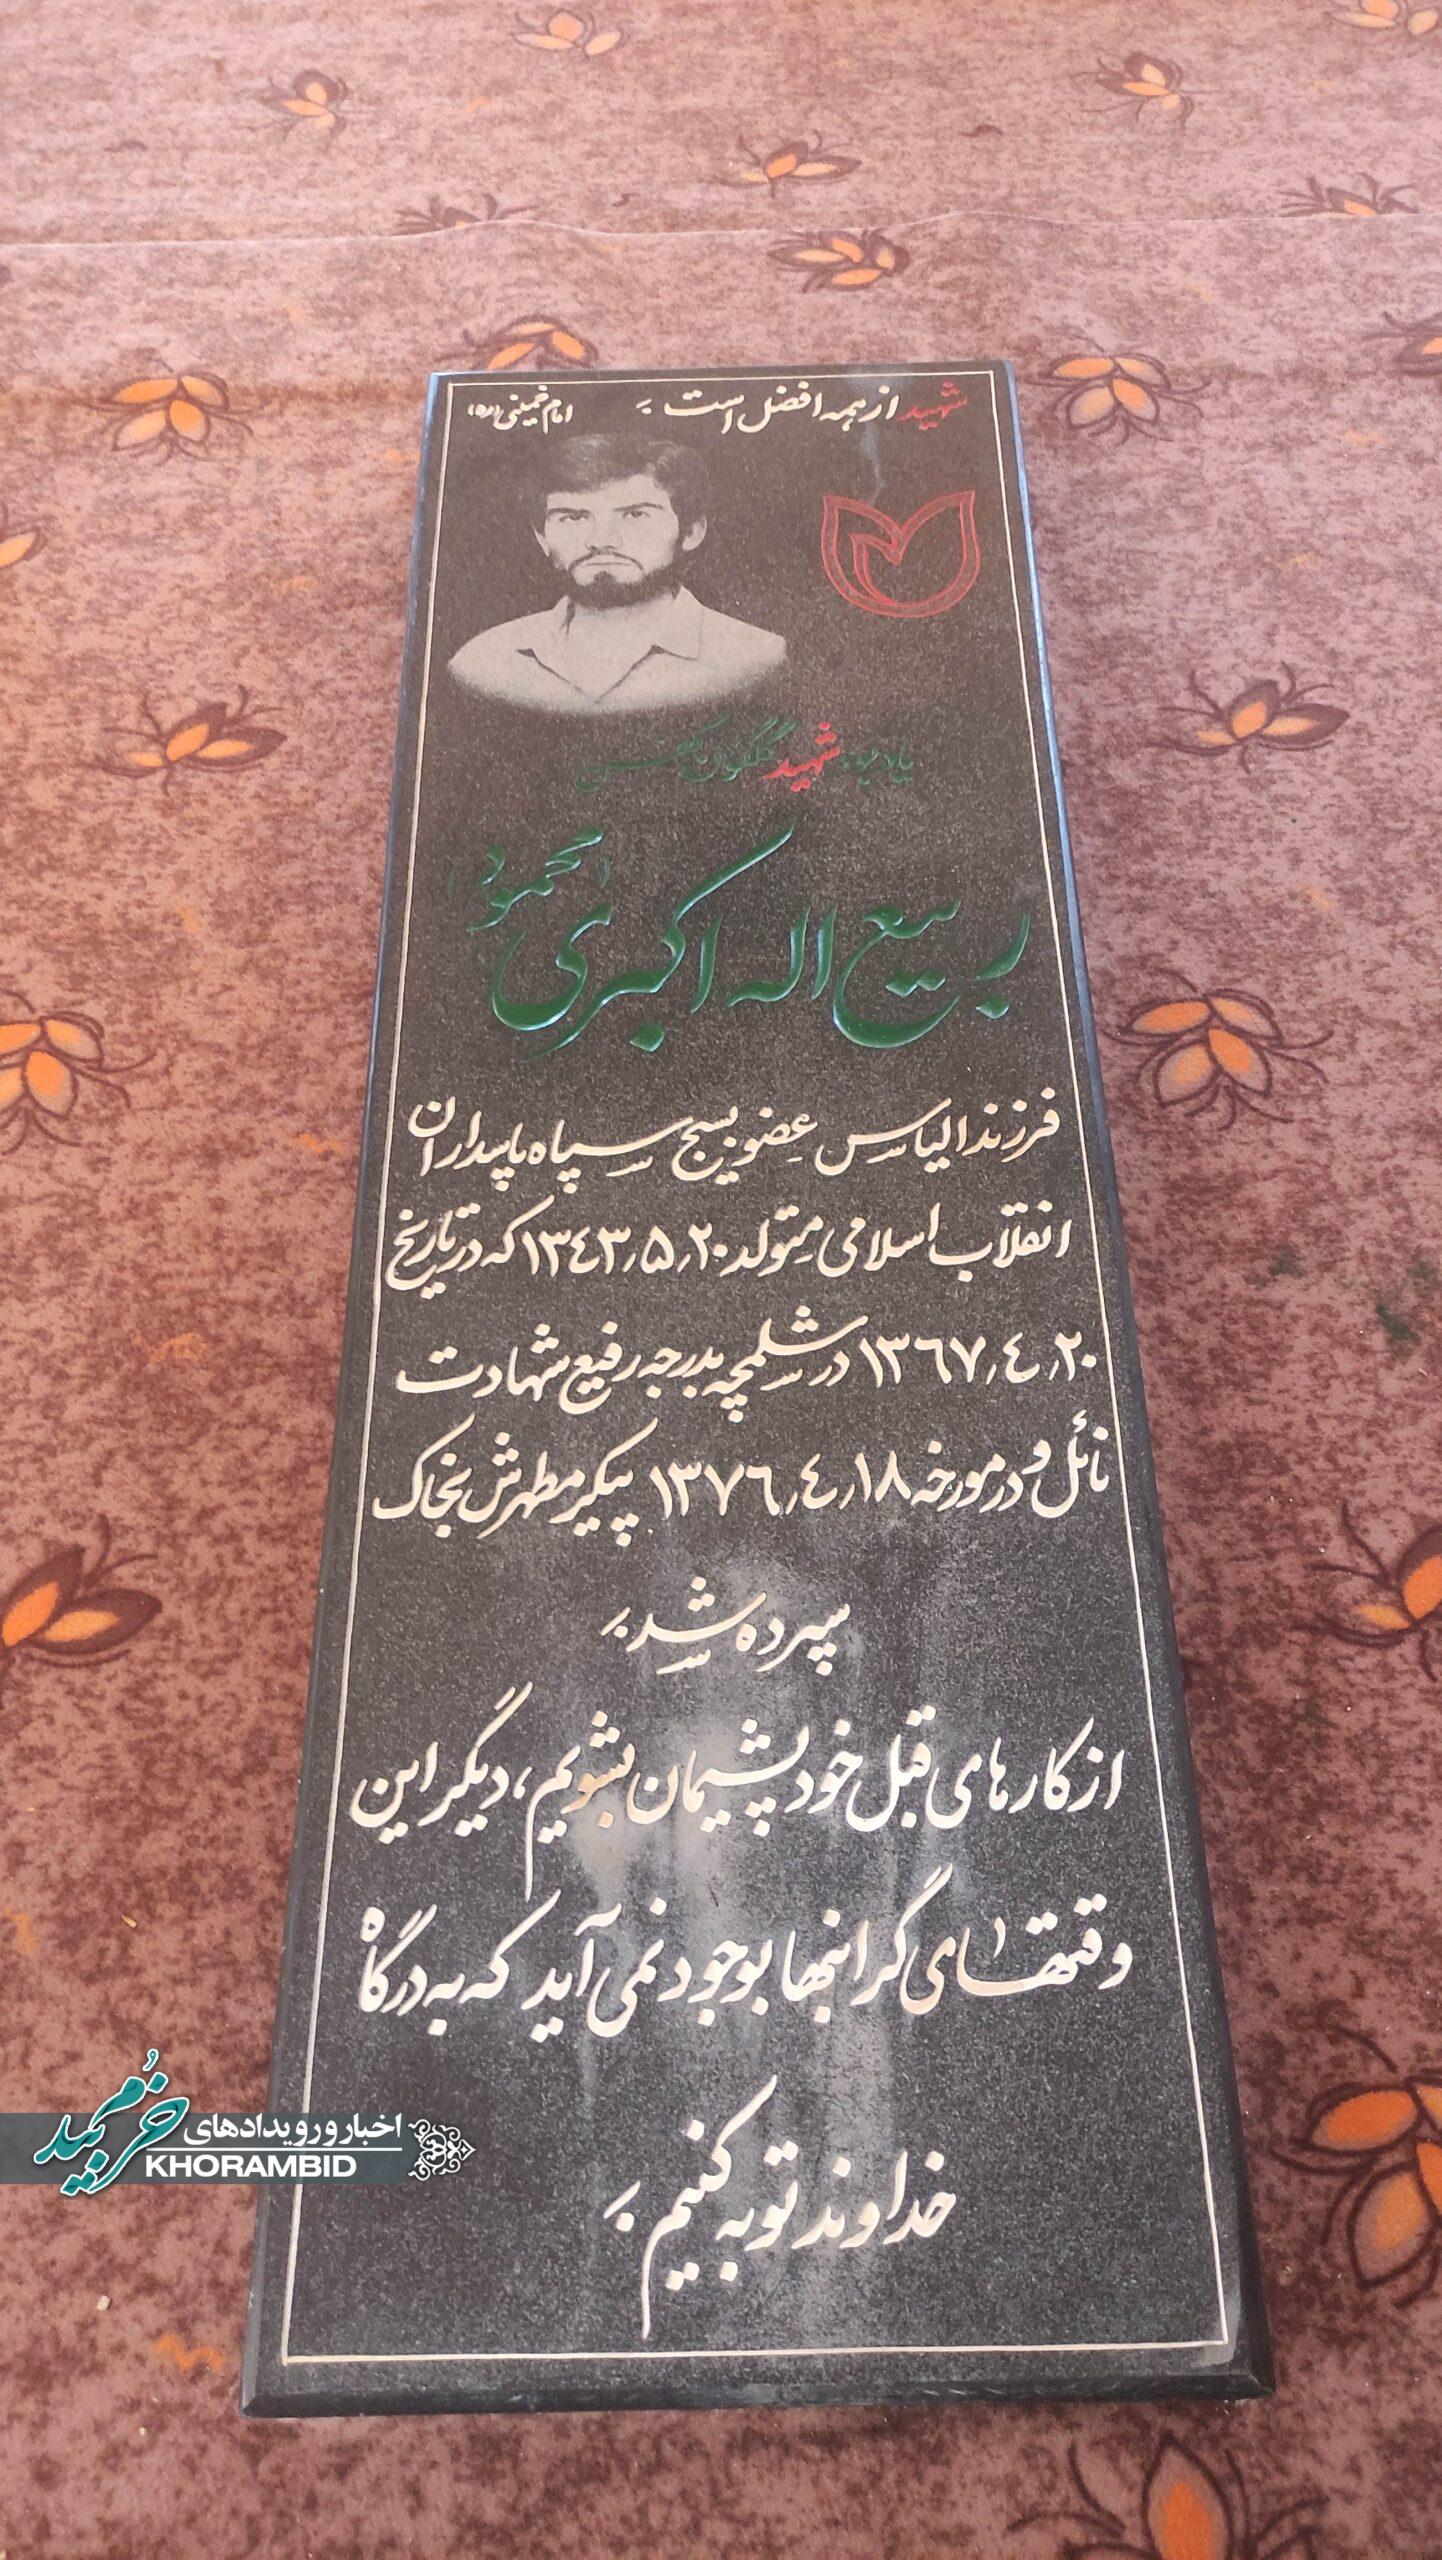 شهید از همه افضل است . امام خمینی (ره)
یادبود شهید گلگون کفن
ربیع اله اکبری (محمود)
فرزند الیاس عضو بسیج سپاه پاسداران
انقلاب اسلامی متولد ۱۳۴۳٫۵٫۲۰ که در تاریخ
۱۳۶۷٫۴٫۲۰ در شلمچه بدرجه رفیع شهادت
نائل و در مورخه ۱۳۷۶٫۴٫۱۸ پیکر مطهرش بخاک
سپرده شد .
از کارهای قبل خود پشیمان بشویم، دیگر این
وقتهای گرانبها بوجود نمی آید که به درگاه
خداوند توبه کنیم .
اخبار و رویدادهای
خرمبید
KHORAMBID